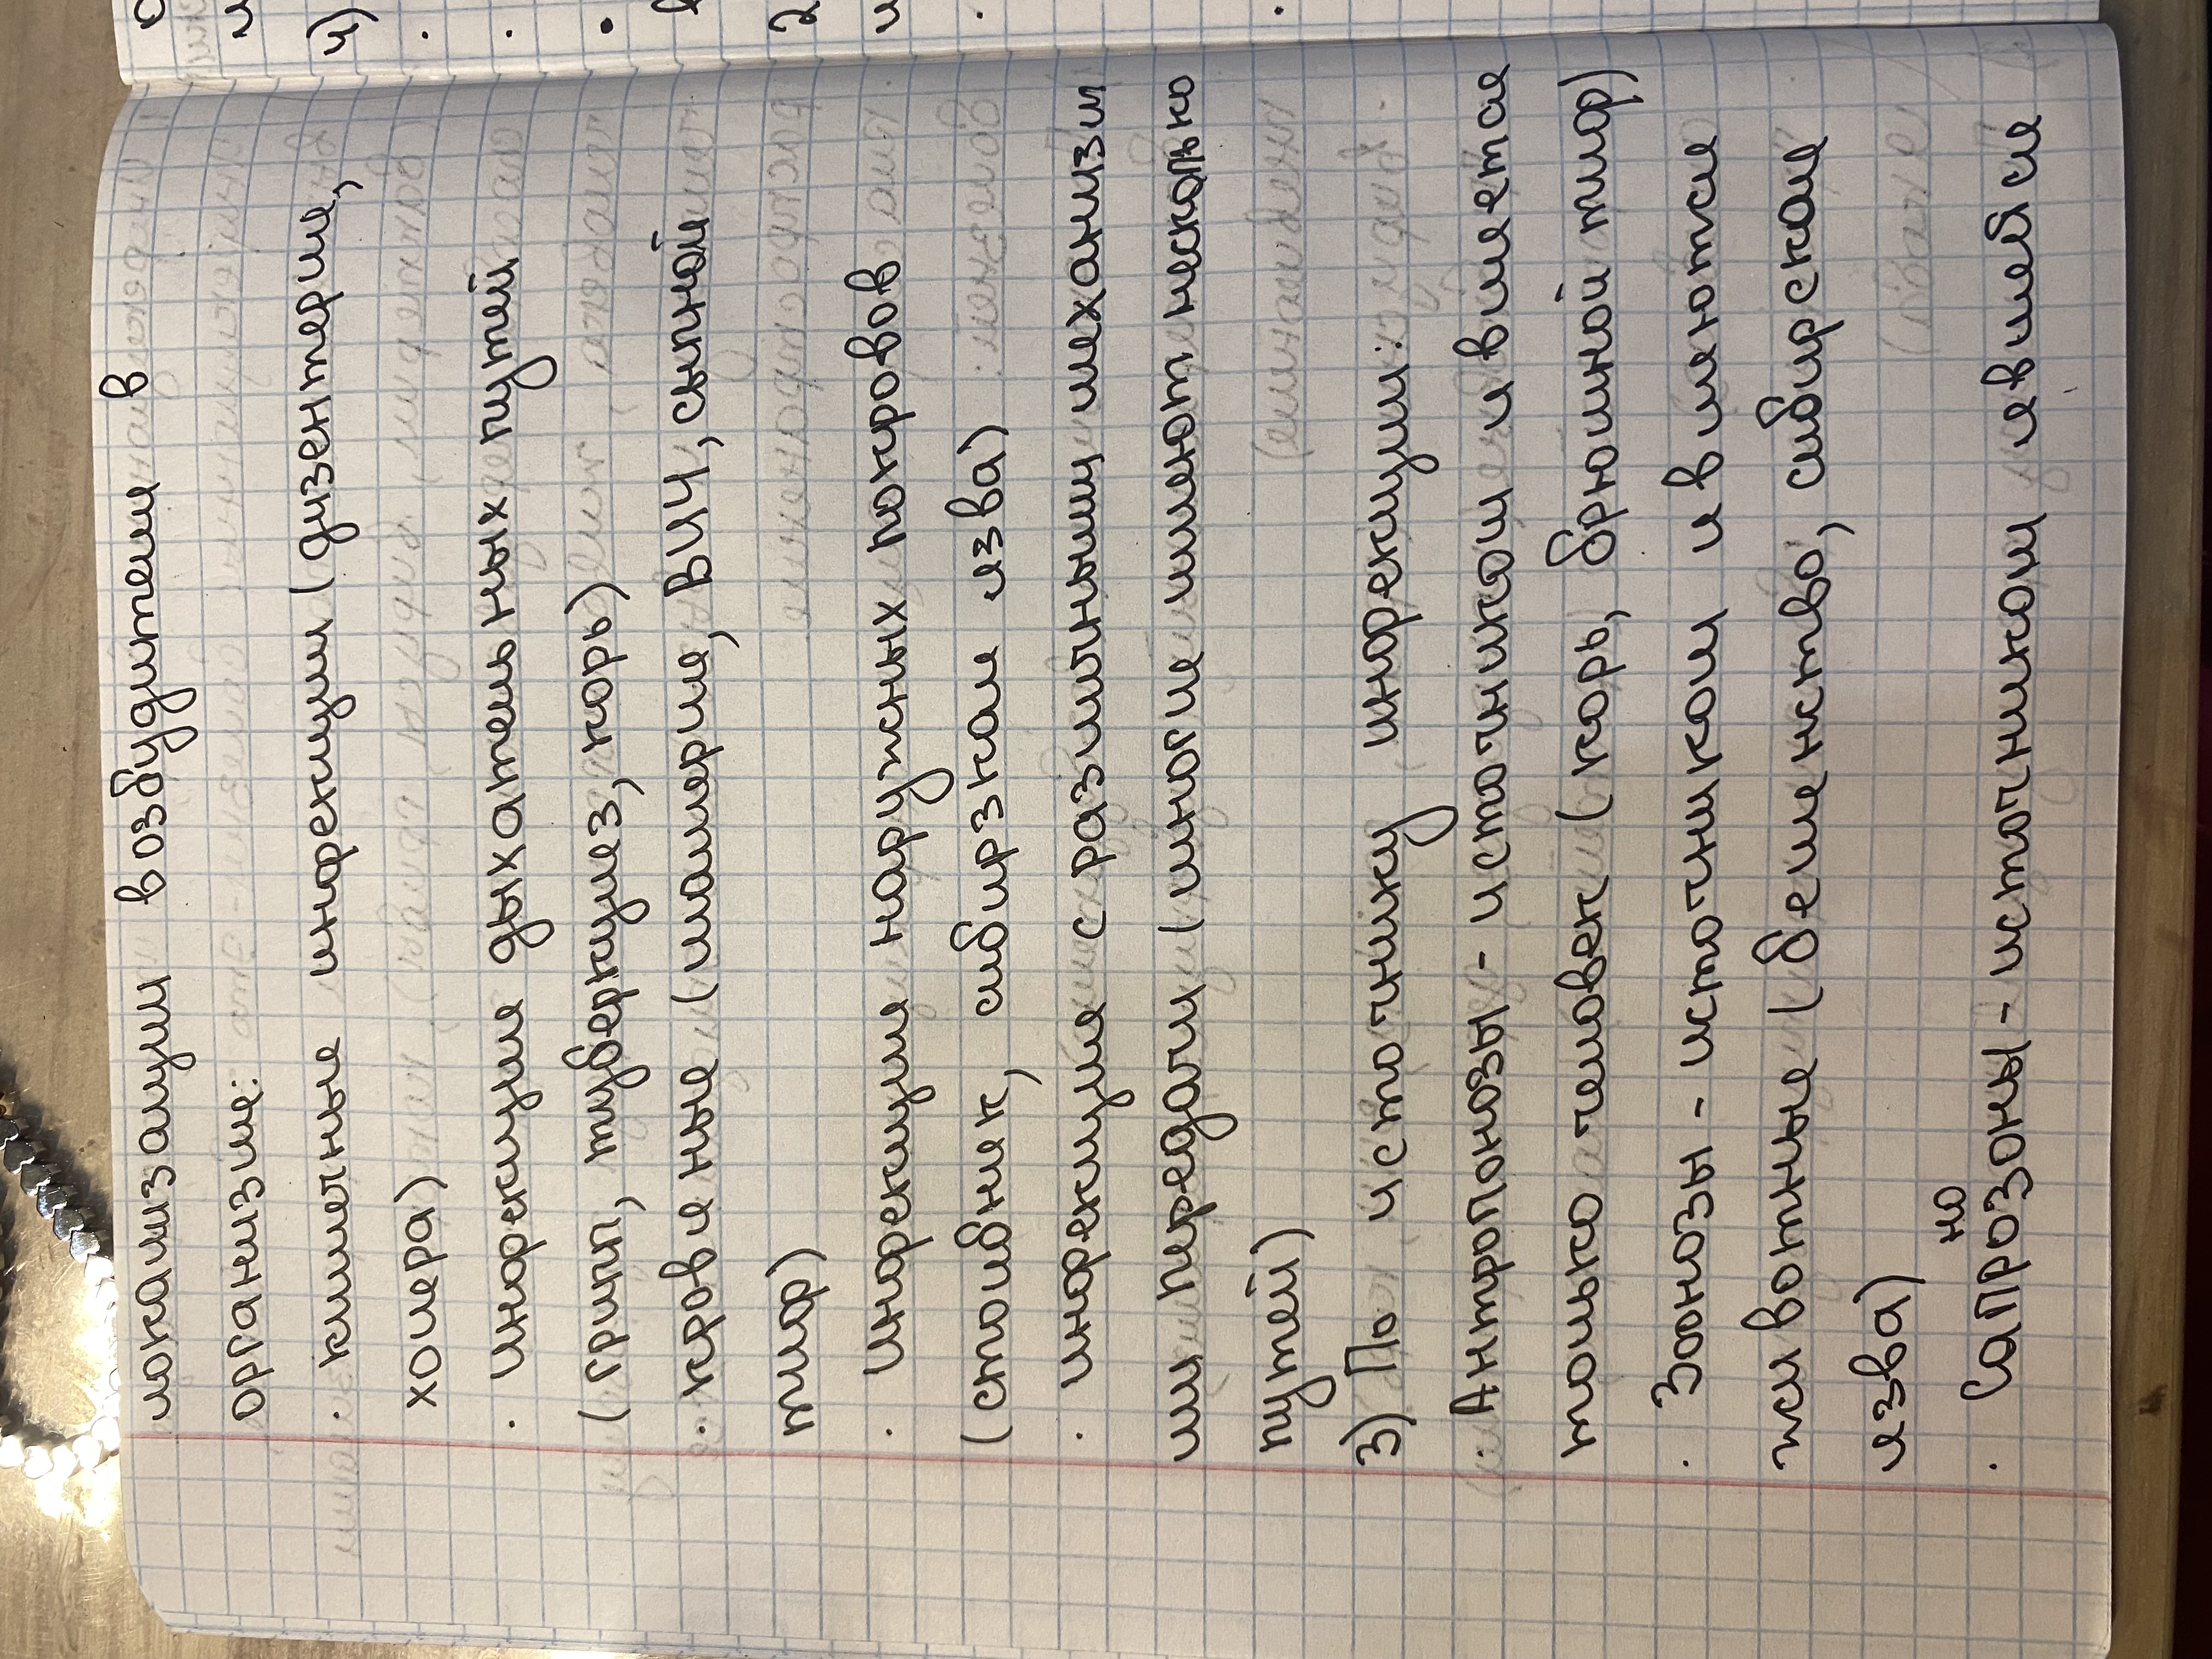 локализации возбудителя в
организме:
· кишечные инфекции (дизентерия,
холера)
· инфекции дыхательных путей
(грипп, туберкулез, корь)
· кровяные (малярия, ВИЧ, сыпной
тиф)
· инфекции наружных покровов
(столбняк, сибирзкая язва)
· инфекция с различными механизм
ми передачи (многие имеют несколько
путей)
3) По источнику инфекции:
· Антропонозы - источником является
только человек (корь, брюшной тиф)
· Зоонозы - источником являются
животные (бешенство, сибирская
язва)
но
· Сапрозоны - источником являейся
4)